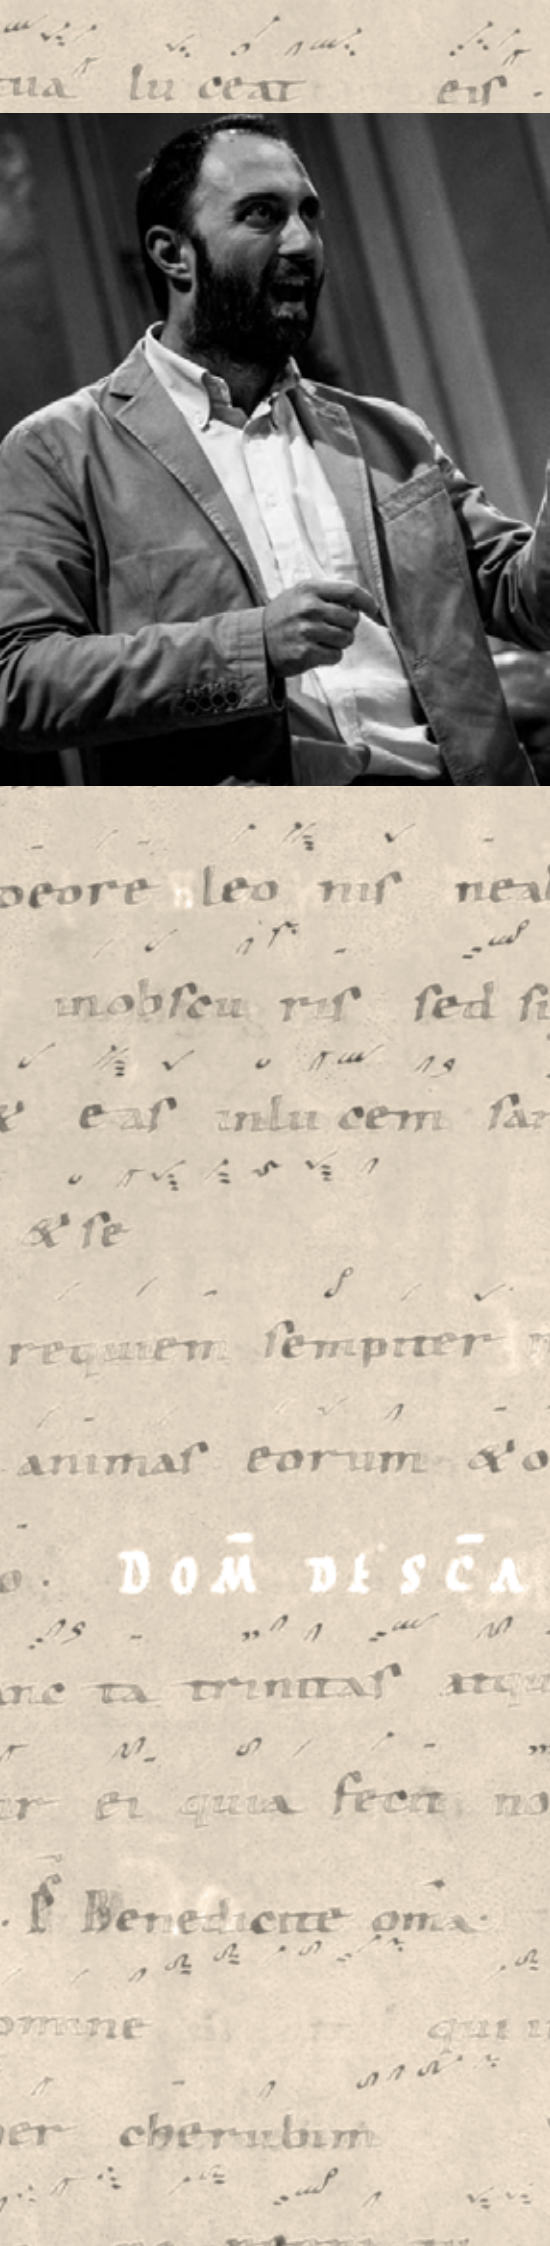 tua lu ceat eis .
oeore leo nis neab
inobscu ris sed si
& eas inlu cem san
& se
requiem sempiter n
animas eorum & o
o . DOM̄ DE SC̄A
anc ta trinitas atqu
ur ei quia fecit no
Benedicite om̄a .
omine qui
per cherubim